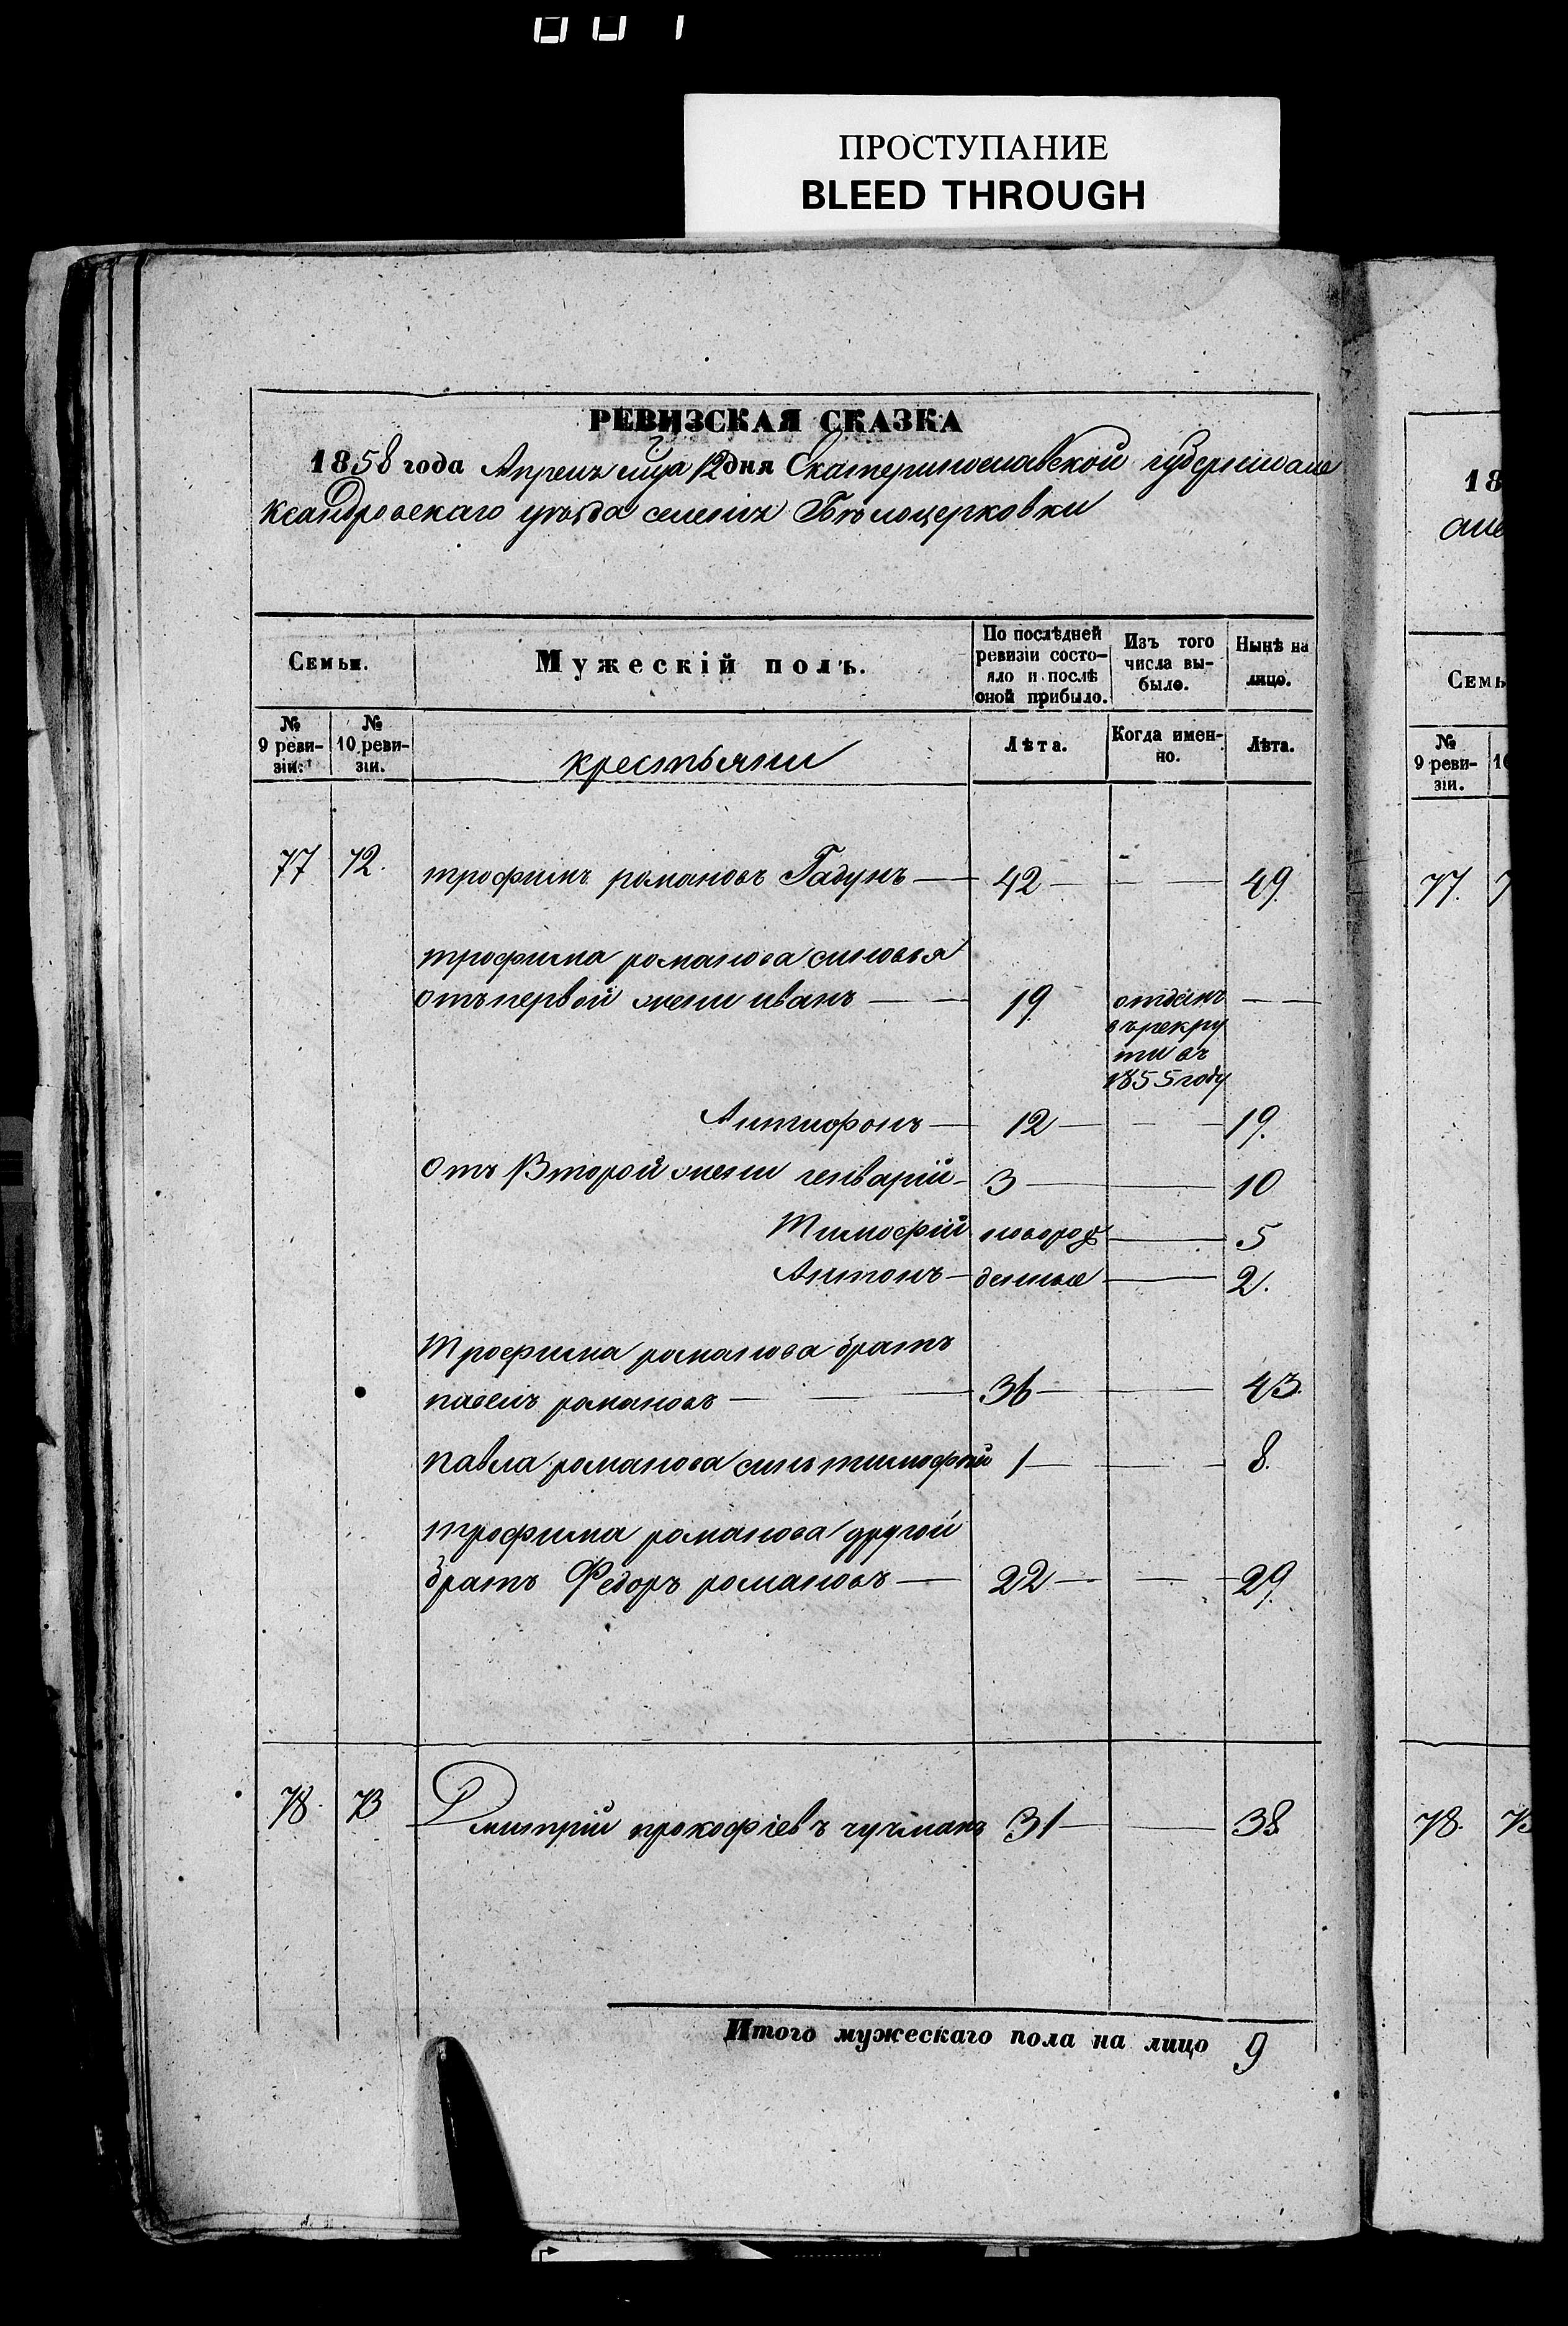 ПРОСТУПАНИЕ
BLEED THROUGH
РЕВИЗСКАЯ СКАЗКА
1858 года Апреля мца 12 дня Екатеринославской губернии але
ксандровскаго уѣзда селенія Бѣлоцерковки
Семьи. Мужескій полъ. По послѣдней ревизіи состояло и послѣ оной прибыло. Изъ того числа выбыло. Нынѣ на лицо.
№ 9 ревизіи. № 10 ревизіи. крестьяни Лѣта. Когда именно. Лѣта.
77 72. трофимъ романовъ Гадунъ — 42 — — 49.
трофима романова синовья
отъ первой жени иванъ — — 19 отданъ — —
въ рекру
ти въ
1855 году
Антиофонъ — 12 — — 19.
Отъ Второй жени генварій — 3 — — 10
Тимофій новорож — 5
Антонъ —денные — 2.
Трофима романова братъ
павелъ романовъ — — 36 — — 43.
павла романова синъ тимофѣй 1 — — 8.
трофима романова другой
братъ Федоръ романовъ — 22 — — 29.
78. 73 Дмитрій прокофіевъ чучманъ 31 — — 38
Итого мужескаго пола на лицо 9
18
але
Семь
№ 9 ревизіи. 10
77. 7
78. 73